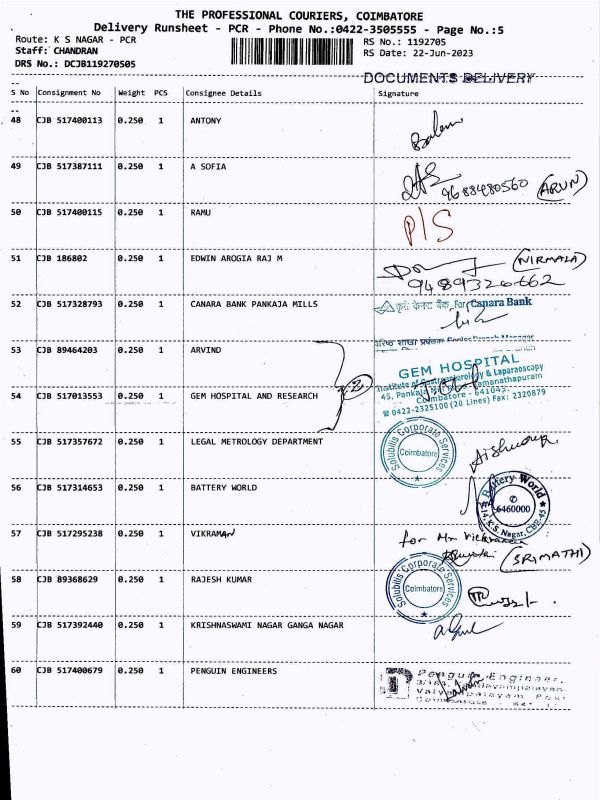 THE PROFESSIONAL COURIERS, COIMBATORE
Delivery Runsheet - PCR - Phone No.:0422-3505555 - Page No.:5
Route: K S NAGAR - PCR
RS No.: 1192705
Staff: CHANDRAN
RS Date: 22-Jun-2023
DRS No.: DCJB119270505
DOCUMENTS DELIVERY
S No Consignment No Weight PCS Consignee Details Signature
48 CJB 517400113 0.250 1 ANTONY
49 CJB 517387111 0.250 1 A SOFIA
9688480560 (ARUN)
50 CJB 517400115 0.250 1 RAMU P/S
51 CJB 186802 0.250 1 EDWIN AROGIA RAJ M (NIRMALA)
9489326662
52 CJB 517328793 0.250 1 CANARA BANK PANKAJA MILLS केनरा बैंक, For Canara Bank
53 CJB 89464203 0.250 1 ARVIND
GEM HOSPITAL
Institute of Gastroenterology & Laparaoscopy
54 CJB 517013553 0.250 1 GEM HOSPITAL AND RESEARCH 2 45, Pankaja Ramanathapuram
Coimbatore - 641045
0422-2325100 (20 Lines) Fax: 2320879
55 CJB 517357672 0.250 1 LEGAL METROLOGY DEPARTMENT Solubilis Corporate Services Coimbatore
56 CJB 517314653 0.250 1 BATTERY WORLD Battery World
6460000
K.S. Nagar, CBE-45
57 CJB 517295238 0.250 1 VIKRAMAN for Mr
(SRIMATHI)
58 CJB 89368629 0.250 1 RAJESH KUMAR Solubilis Corporate Services Coimbatore
59 CJB 517392440 0.250 1 KRISHNASWAMI NAGAR GANGA NAGAR
60 CJB 517400679 0.250 1 PENGUIN ENGINEERS Penguin Engineer